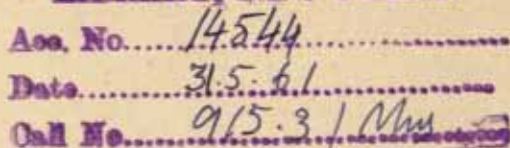 Acc. No.....14544...............
Date.........31.5.61....................
Call No.......915.31/Mus...........